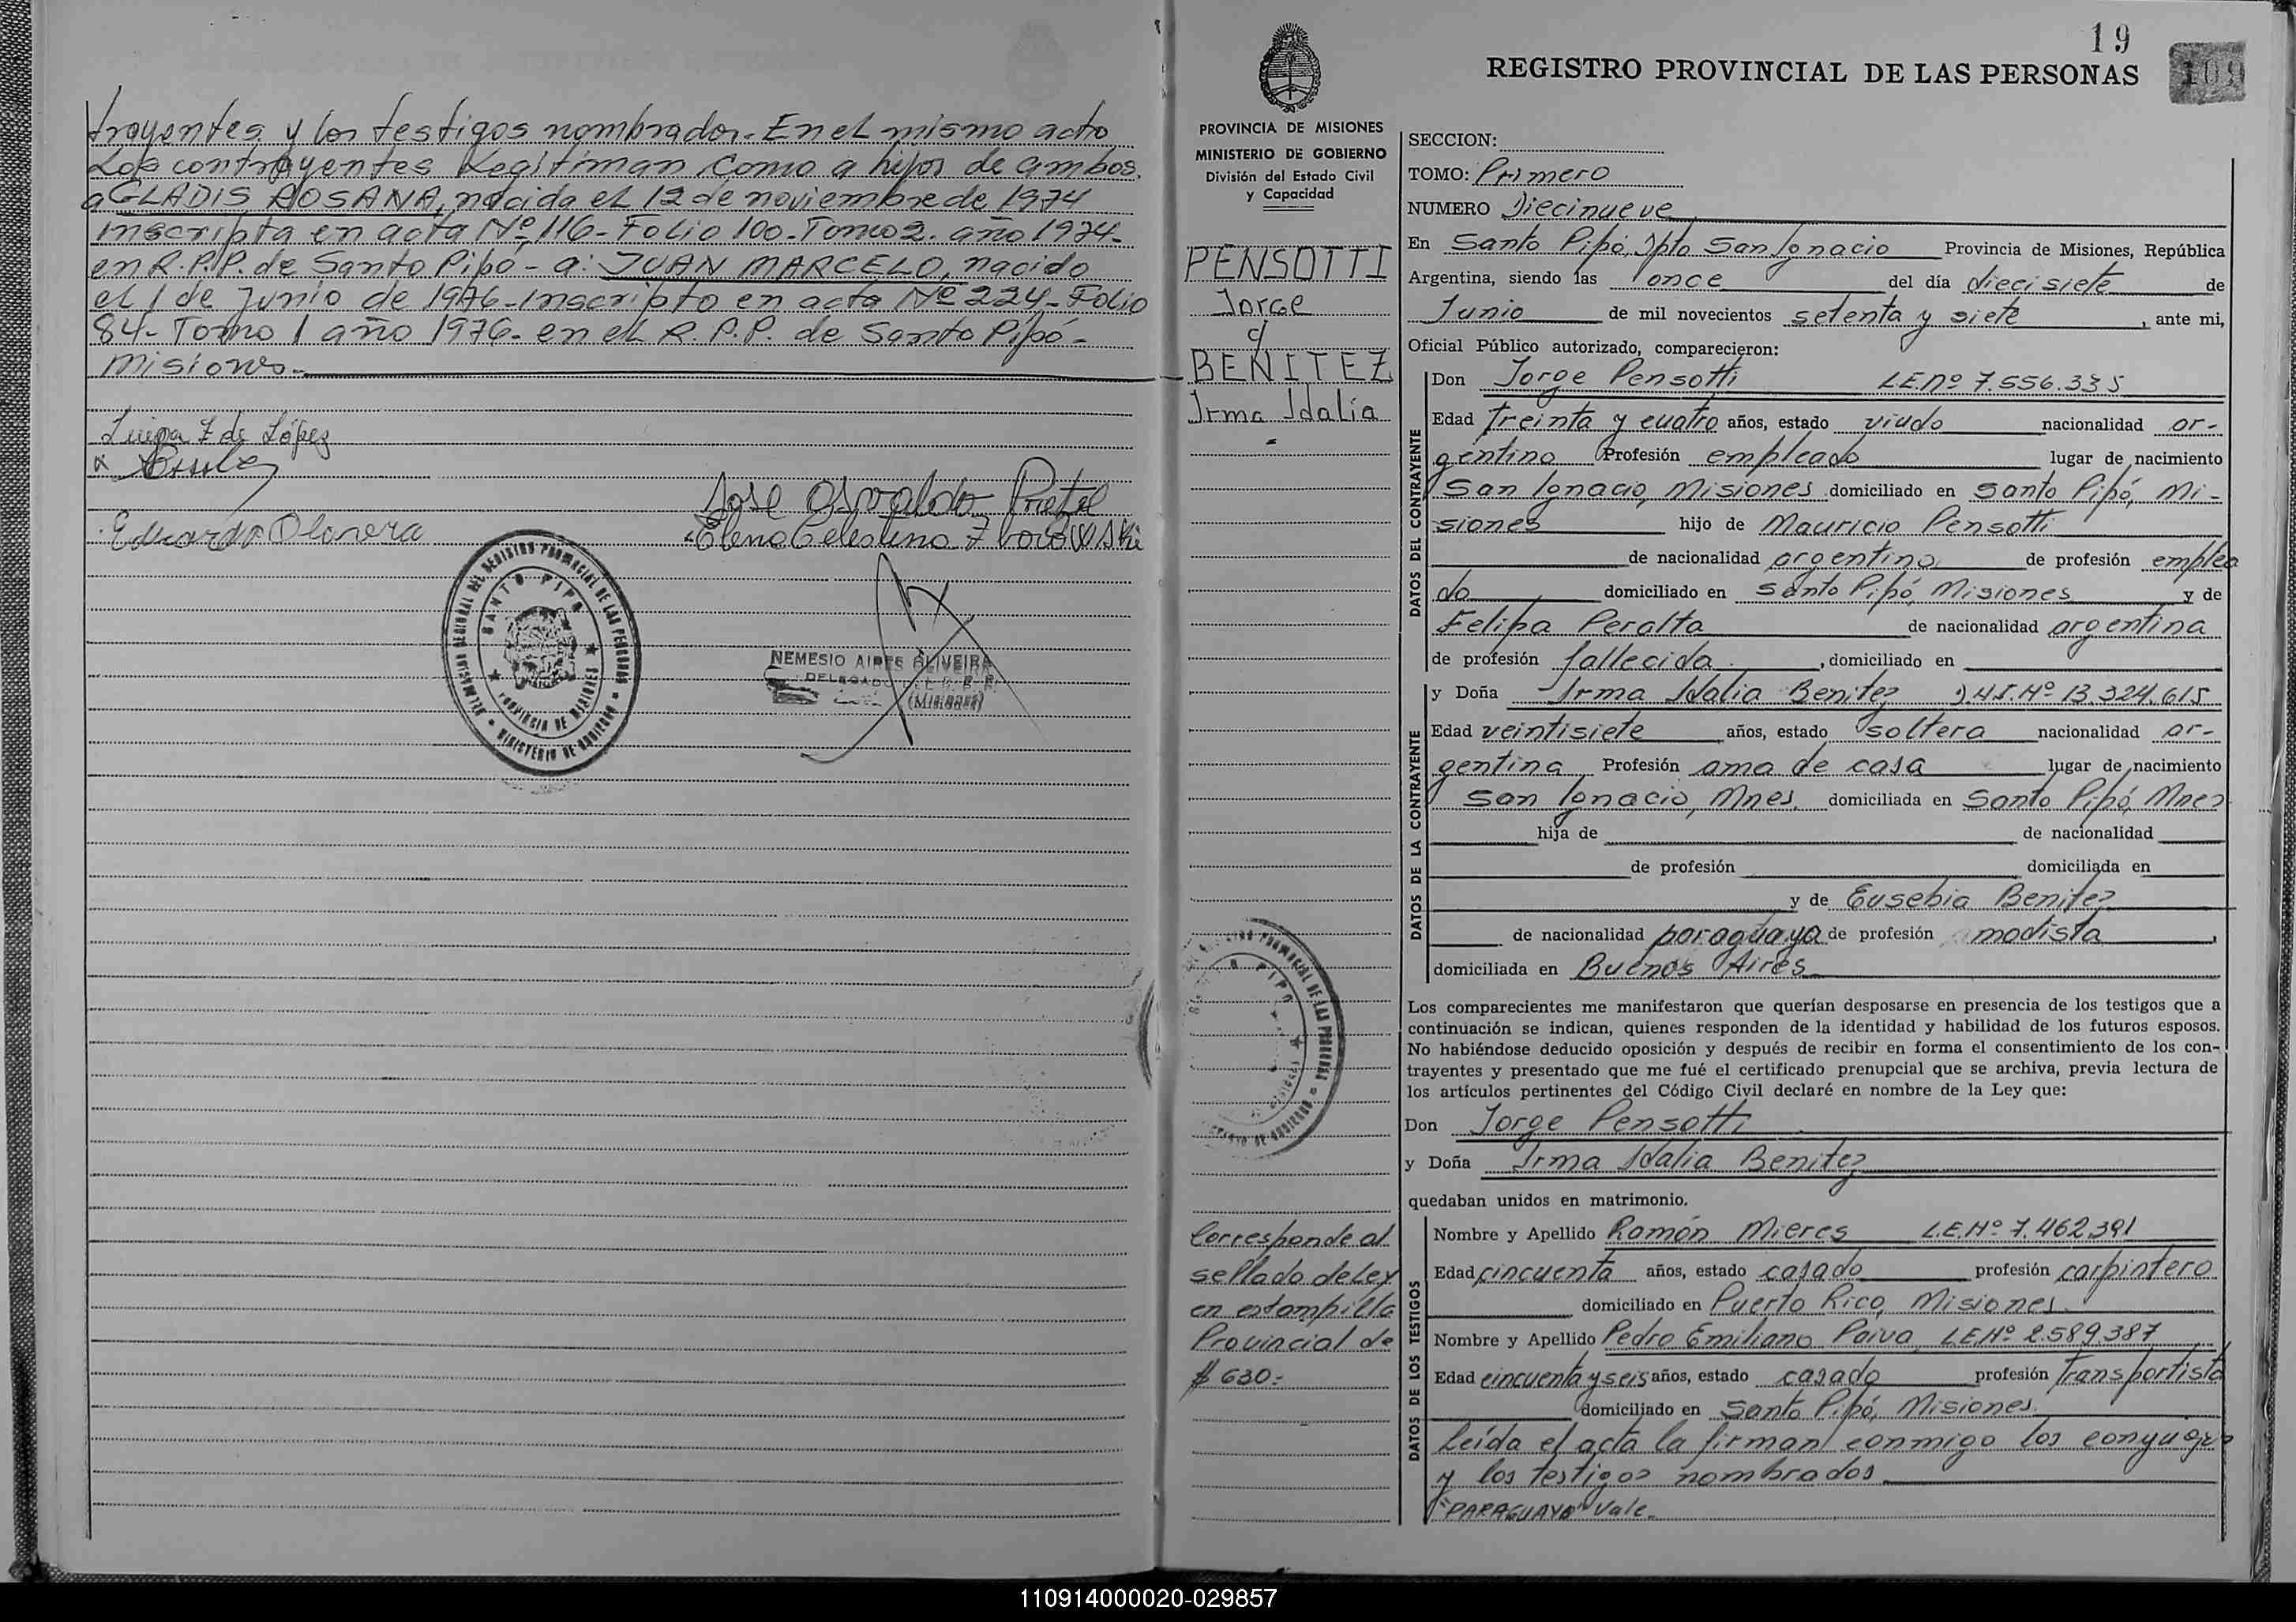 trayentes y los testigos nombrados.- En el mismo acto
Los contrayentes Legitiman como a hijos de ambos.
a GLADIS ROSANA, nacida el 12 de noviembre de 1974
inscripta en acta Nº 116- Folio 100- Tomo 2. año 1974-
en R.P.P. de Santo Pipó - a: JUAN MARCELO, nacido
el 1 de Junio de 1976- Inscripto en acta Nº 224- Folio
84- Tomo 1 año 1976- en el R. P. P. de Santo Pipó-
Misiones.-
Luisa Z de López
Eduardo Olivera
José Osvaldo
Elena Celestina
SANTO PIPO
PROVINCIA DE MISIONES
MINISTERIO DE GOBIERNO
NEMESIO AIRES OLIVEIRA
DELEGADO
(Misiones)
19
109
REGISTRO PROVINCIAL DE LAS PERSONAS
PROVINCIA DE MISIONES
MINISTERIO DE GOBIERNO
División del Estado Civil
y Capacidad
PENSOTTI
Jorge
c/
BENITEZ
Irma Idalia
Corresponde al
sellado de Ley
en estampilla
Provincial de
$ 630.-
SECCION:
TOMO: Primero
NUMERO Diecinueve
En Santo Pipó, Dpto San Ignacio Provincia de Misiones, República
Argentina, siendo las once del día diecisiete de
Junio de mil novecientos setenta y siete, ante mi,
Oficial Público autorizado, comparecieron:
DATOS DEL CONTRAYENTE
Don Jorge Pensotti LE.nº 7.556.335
Edad Treinta y cuatro años, estado viudo nacionalidad ar-
gentino Profesión empleado lugar de nacimiento
San Ignacio, Misiones domiciliado en Santo Pipó, Mi-
siones hijo de Mauricio Pensotti
de nacionalidad argentino de profesión emplea
do domiciliado en Santo Pipó, Misiones y de
Felipa Peralta de nacionalidad argentina
de profesión fallecida, domiciliado en
DATOS DE LA CONTRAYENTE
y Doña Irma Idalia Benitez D.N.I. Nº 13.324.615
Edad veintisiete años, estado soltera nacionalidad ar-
gentina Profesión ama de casa lugar de nacimiento
San Ignacio, Mnes. domiciliada en Santo Pipó, Mnes
hija de de nacionalidad
de profesión domiciliada en
y de Eusebia Benitez
de nacionalidad paraguaya de profesión modista,
domiciliada en Buenos Aires
Los comparecientes me manifestaron que querían desposarse en presencia de los testigos que a
continuación se indican, quienes responden de la identidad y habilidad de los futuros esposos.
No habiéndose deducido oposición y después de recibir en forma el consentimiento de los con-
trayentes y presentado que me fué el certificado prenupcial que se archiva, previa lectura de
los artículos pertinentes del Código Civil declaré en nombre de la Ley que:
Don Jorge Pensotti
y Doña Irma Idalia Benitez
quedaban unidos en matrimonio.
DATOS DE LOS TESTIGOS
Nombre y Apellido Ramón Mieres L.E.Nº 7.462.391
Edad cincuenta años, estado casado profesión carpintero
domiciliado en Puerto Rico, Misiones.
Nombre y Apellido Pedro Emiliano Paiva, L.E.Nº 2.589.387
Edad cincuenta y seis años, estado casado profesión Transportista
domiciliado en Santo Pipó, Misiones.
Leída el acta la firman conmigo los conyuges
y los testigos nombrados
"PARAGUAYA" Vale.
110914000020-029857